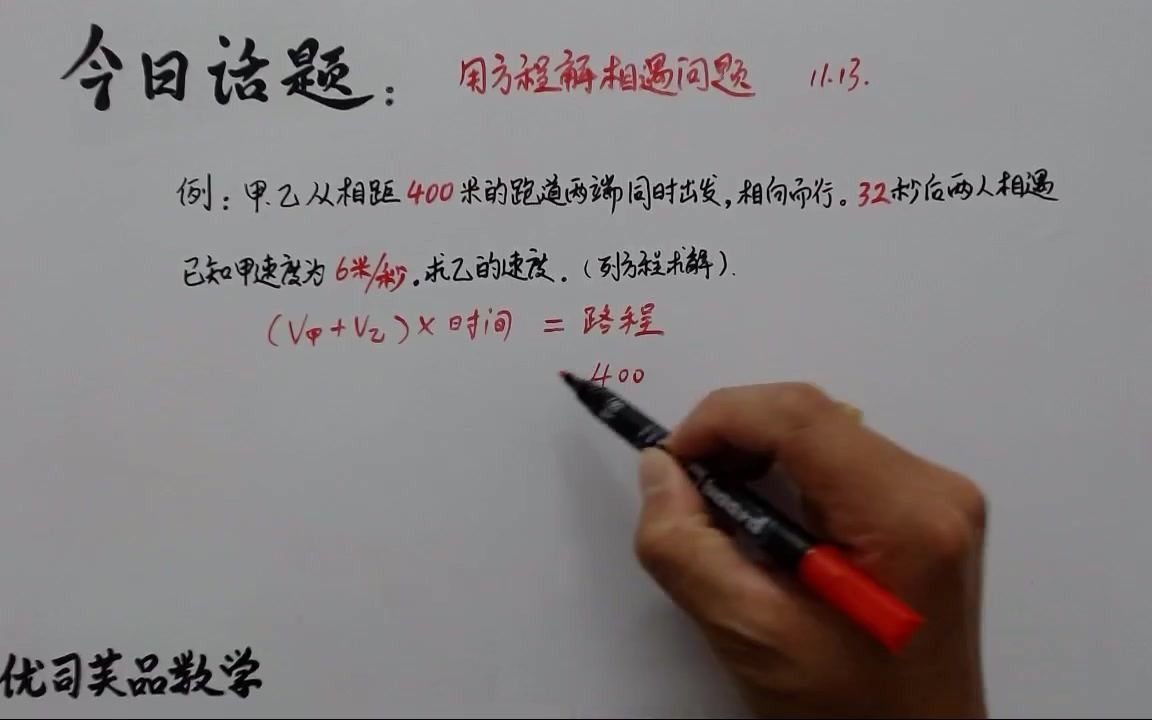 今日话题：
用方程解相遇问题 11.13.
例：甲.乙从相距400米的跑道两端同时出发，相向而行。32秒后两人相遇
已知甲速度为6米/秒.求乙的速度.（列方程求解）.
(V甲+V乙)×时间 = 路程
400
优司芙品数学